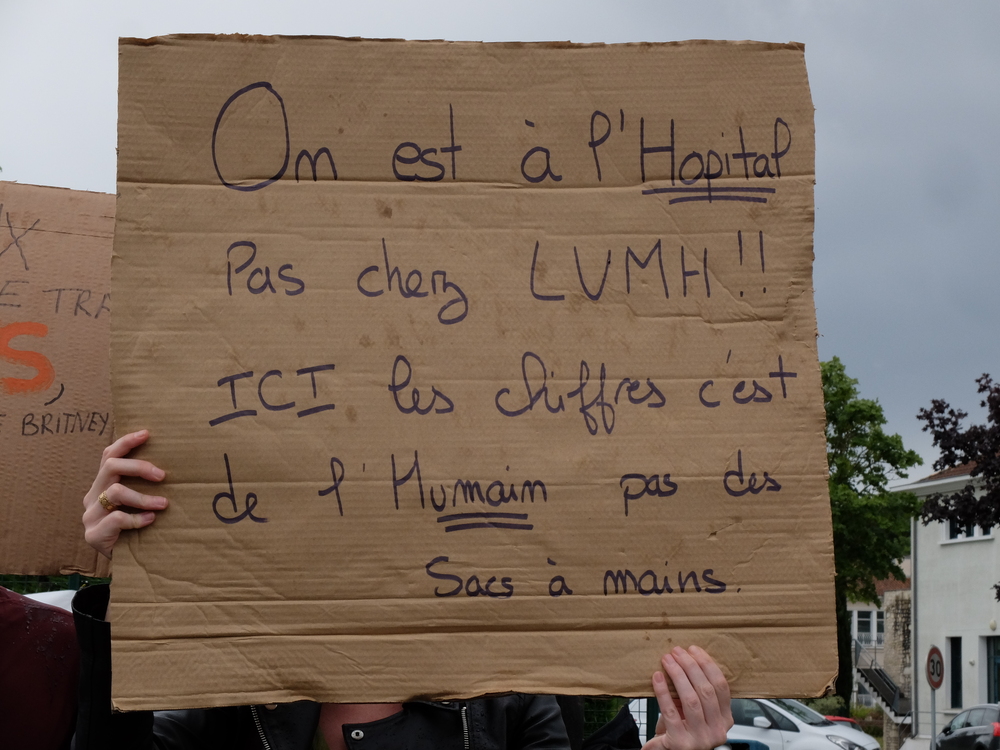 On est à l'Hopital
Pas chez LVMH!!
ICI les chiffres c'est
de l'Humain pas des
Sacs à mains.
X
E TRA
S,
E BRITNEY
30